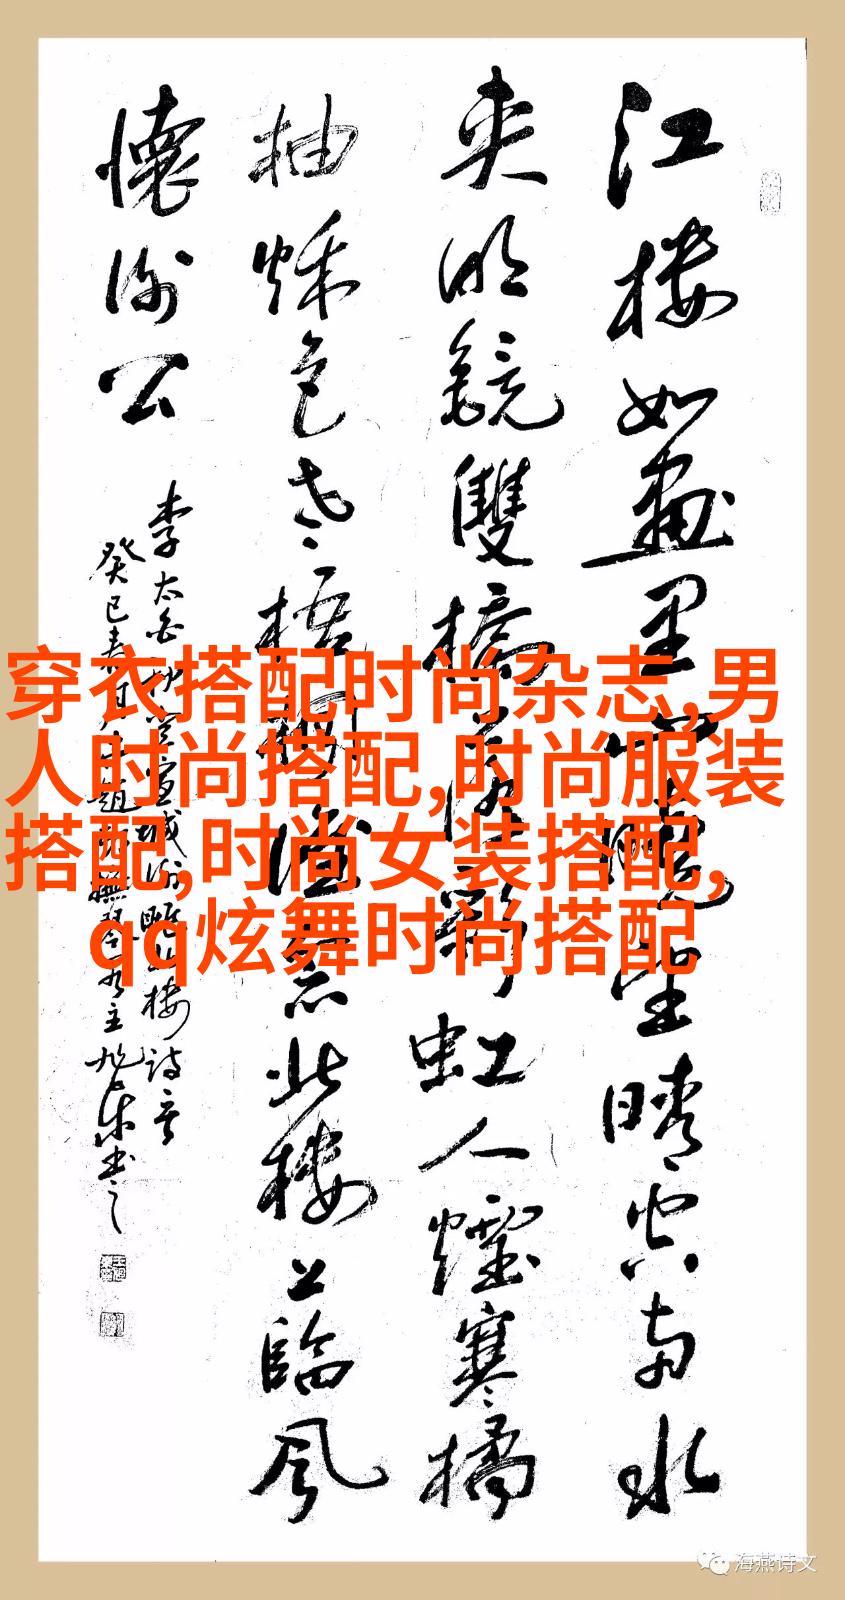 江樓如畫里山曉望晴空兩水
夾明鏡雙橋落彩虹人煙寒橘
柚秌色老梧桐誰念北樓上臨風
懷謝公
李太白秋登宣城謝朓北樓詩意
癸巳春月
穿衣搭配时尚杂志,男
人时尚搭配,时尚服装
搭配,时尚女装搭配,
qq炫舞时尚搭配
海燕诗文